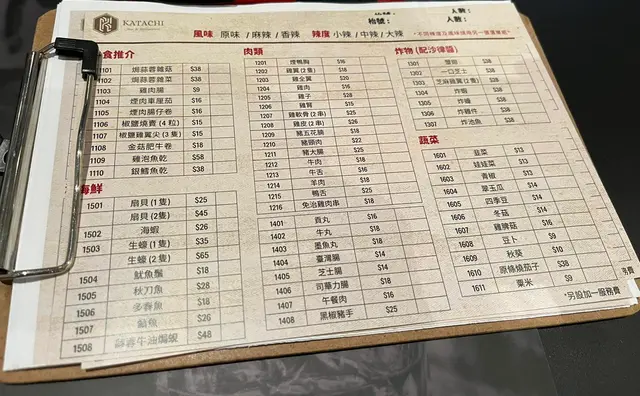 KATACHI
枱號： 人數：
風味 原味 / 麻辣 / 香辣 辣度 小辣 / 中辣 / 大辣
食推介
1101 焗蒜蓉雜菇 $38
1102 焗蒜蓉雜菜 $38
1103 雞肉腸 $9
1104 煙肉車厘茄 $16
1105 煙肉腸仔卷 $16
1106 椒鹽燒賣 (4 粒) $15
1107 椒鹽雞翼尖 (3 隻) $15
1108 金菇肥牛卷 $18
1109 雞泡魚乾 $58
1110 銀鱈魚乾 $38
海鮮
1501 扇貝 (1 隻) $25
扇貝 (2 隻) $45
1502 海蝦 $26
1503 生蠔 (1 隻) $35
生蠔 (2 隻) $65
1504 魷魚鬚 $18
1505 秋刀魚 $28
1506 多春魚 $18
1507 $26
1508 蒜蓉牛油焗蜆 $48
肉類
1201 煙鴨胸 $16
1202 雞翼 (2 隻) $18
1203 雞全翼 $20
1204 雞肉 $16
1205 雞子 $28
1206 雞腎 $15
1207 雞軟骨 (2 串) $25
1208 雞皮 (2 串) $26
1209 豬五花腸 $18
1210 豬頸肉 $22
1211 豬大腸 $25
1212 牛肉 $18
1213 牛舌 $16
1214 羊肉 $18
1215 鴨舌 $25
1216 免治雞肉串 $18
1401 貢丸 $16
1402 牛丸 $18
1403 墨魚丸 $18
1404 臺灣腸 $14
1405 芝士腸 $14
1406 司華力腸 $18
1407 午餐肉 $16
1408 黑椒豬手 $25
炸物 (配沙律醬)
1301 $38
1302 一口芝士 $38
1303 芝麻雞翼 (2 隻) $38
1304 $38
1305 $38
1306 炸雞件 $38
1307 炸池魚 $38
蔬菜
1601 韭菜 $13
1602 娃娃菜 $13
1603 青椒 $13
1604 翠玉瓜 $14
1605 四季豆 $14
1606 冬菇 $14
1607 雞髀菇 $16
1608 豆卜 $9
1609 秋葵 $10
1610 原條燒茄子 $38
1611 粟米 $9
*另設加一服務費